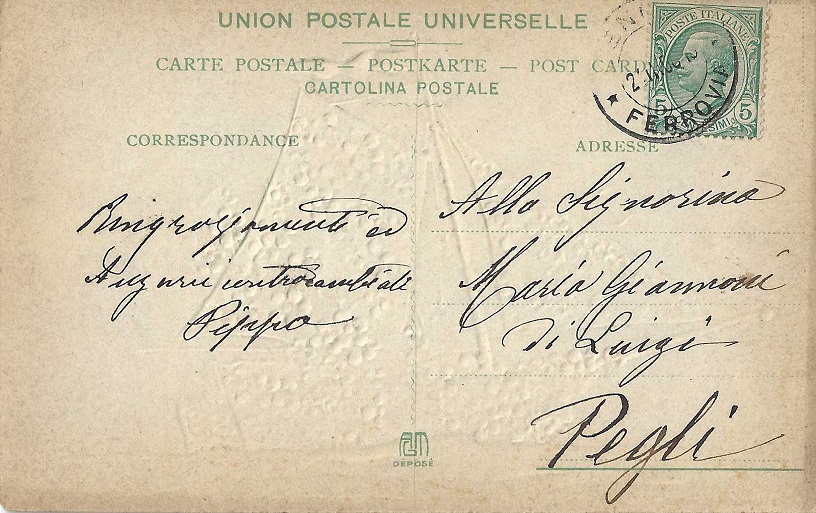 UNION POSTALE UNIVERSELLE
CARTE POSTALE — POSTKARTE — POST CARD
CARTOLINA POSTALE
POSTE ITALIANE
5 5
FERROVIA
CORRESPONDANCE
ADRESSE
Ringraziamenti ed
Augurii contracambiati
Pippo
Alla Signorina
Maria Giannoni
di Luigi
Pegli
AGM
DEPOSÉ